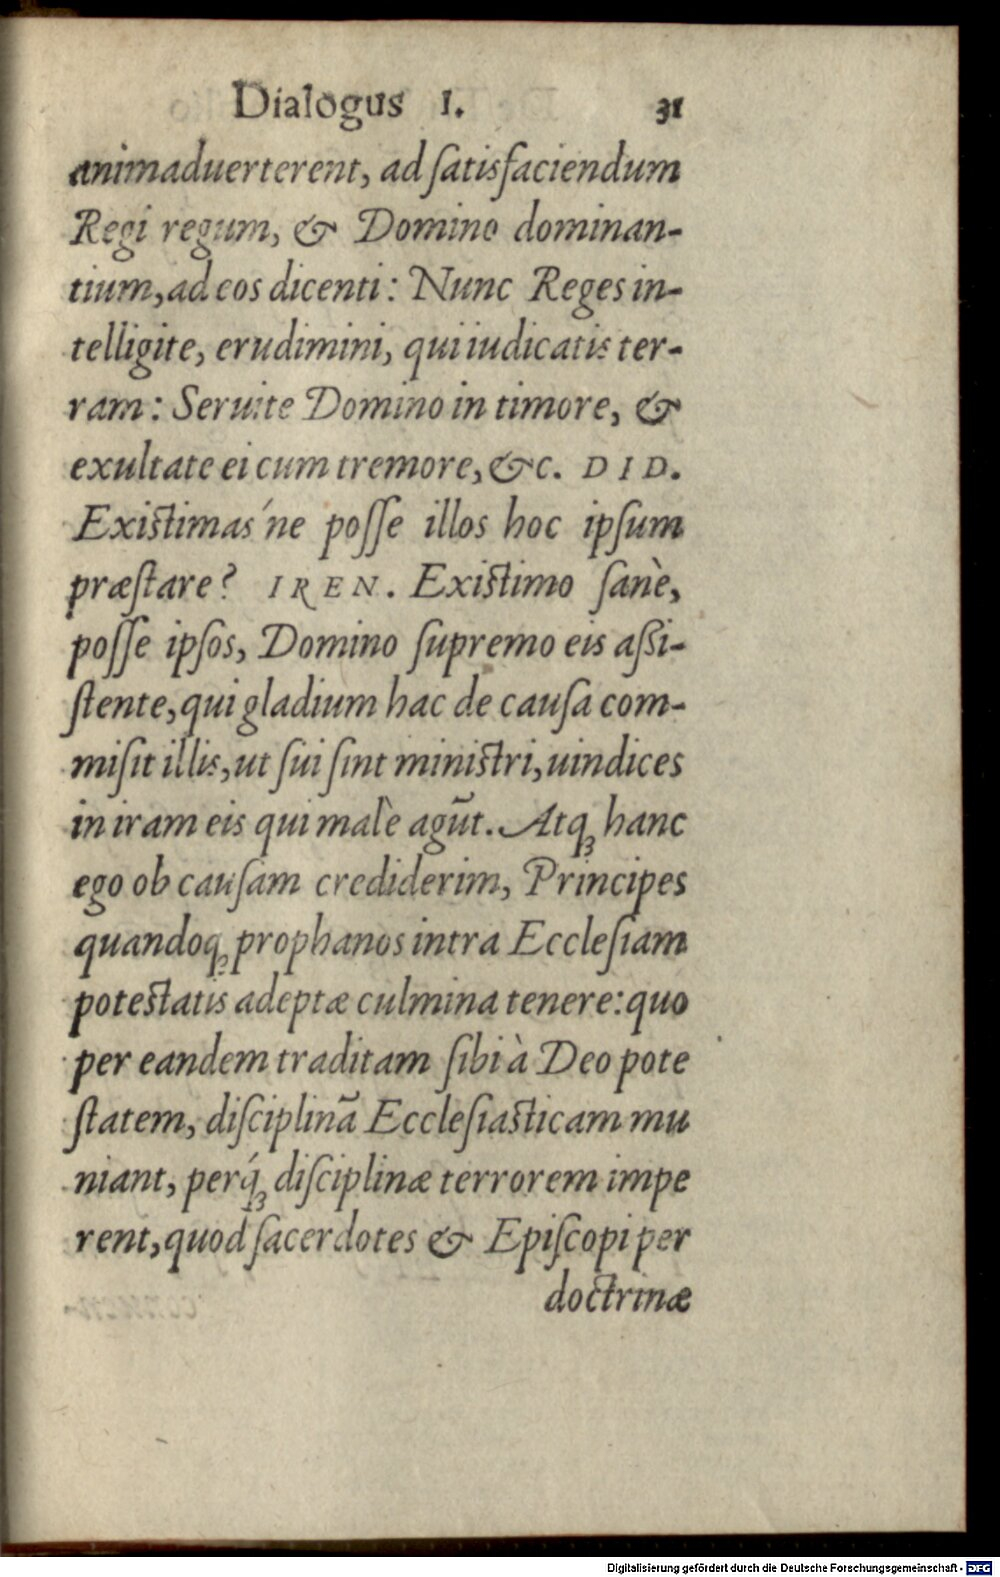 Dialogus I. 31
animaduerterent, ad ſatisfaciendum
Regi regum, & Domino dominan-
tium, ad eos dicenti: Nunc Reges in-
telligite, erudimini, qui iudicatis ter-
ram: Seruite Domino in timore, &
exultate ei cum tremore, &c. DID.
Existimas'ne poſſe illos hoc ipſum
præſtare? IREN. Existimo ſanè,
poſſe ipſos, Domino ſupremo eis aßi-
ſtente, qui gladium hac de cauſa com-
miſit illis, ut ſui ſint ministri, uindices
in iram eis qui malè agũt. Atqꝫ hanc
ego ob cauſam crediderim, Principes
quandoqꝫ prophanos intra Eccleſiam
potestatis adeptæ culmina tenere: quo
per eandem traditam ſibi à Deo pote
ſtatem, diſciplinã Eccleſiasticam mu
niant, perq́ꝫ diſciplinæ terrorem impe
rent, quod ſacerdotes & Epiſcopi per
doctrinæ
Digitalisierung gefördert durch die Deutsche Forschungsgemeinschaft - DFG